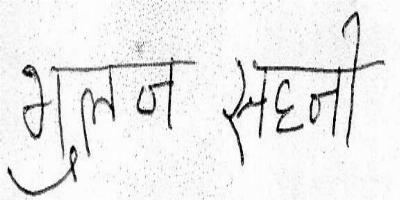 भुलन सहनी